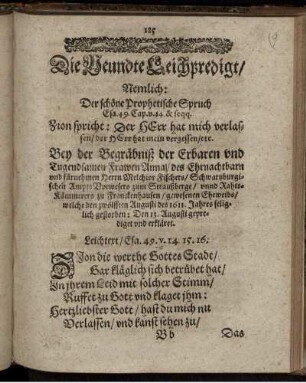 185
Die Neundte Leichpredigt/
Nemlich:
Der schöne Prophetische Spruch
Esa. 49. Cap. v. 14. & seqq.
Zion spricht: Der HErr hat mich verlas-
sen/ der HErr hat mein vergessen/etc.
Bey der Begräbnüß der Erbaren vnd
Tugendsamen Frawen Annae/ des Ehrnachtbarn
vnd fürnehmen Herrn Melchior Fischers/ Schwartzburgi-
schen Ampts Vorwesers zum Straußberge/ vnnd Rahts-
Kämmerers zu Franckenhausen/ gewesenen Eheweibs/
welche den zwölfften Augusti des 1611. Jahres selig-
lich gestorben: Den 13. Augusti gepre-
diget vnd erkläret.
Leichtext/ Esa. 49. v. 14. 15. 16.
ZJon die werthe Gottes Stadt/
Gar kläglich sich betrübet hat/
Jn jhrem Leid mit solcher Stimm/
Ruffet zu Gott vnd klaget jhm:
Hertzliebster Gott/ hast du mich nu
Verlassen/ vnd kanst sehen zu/
B b Das